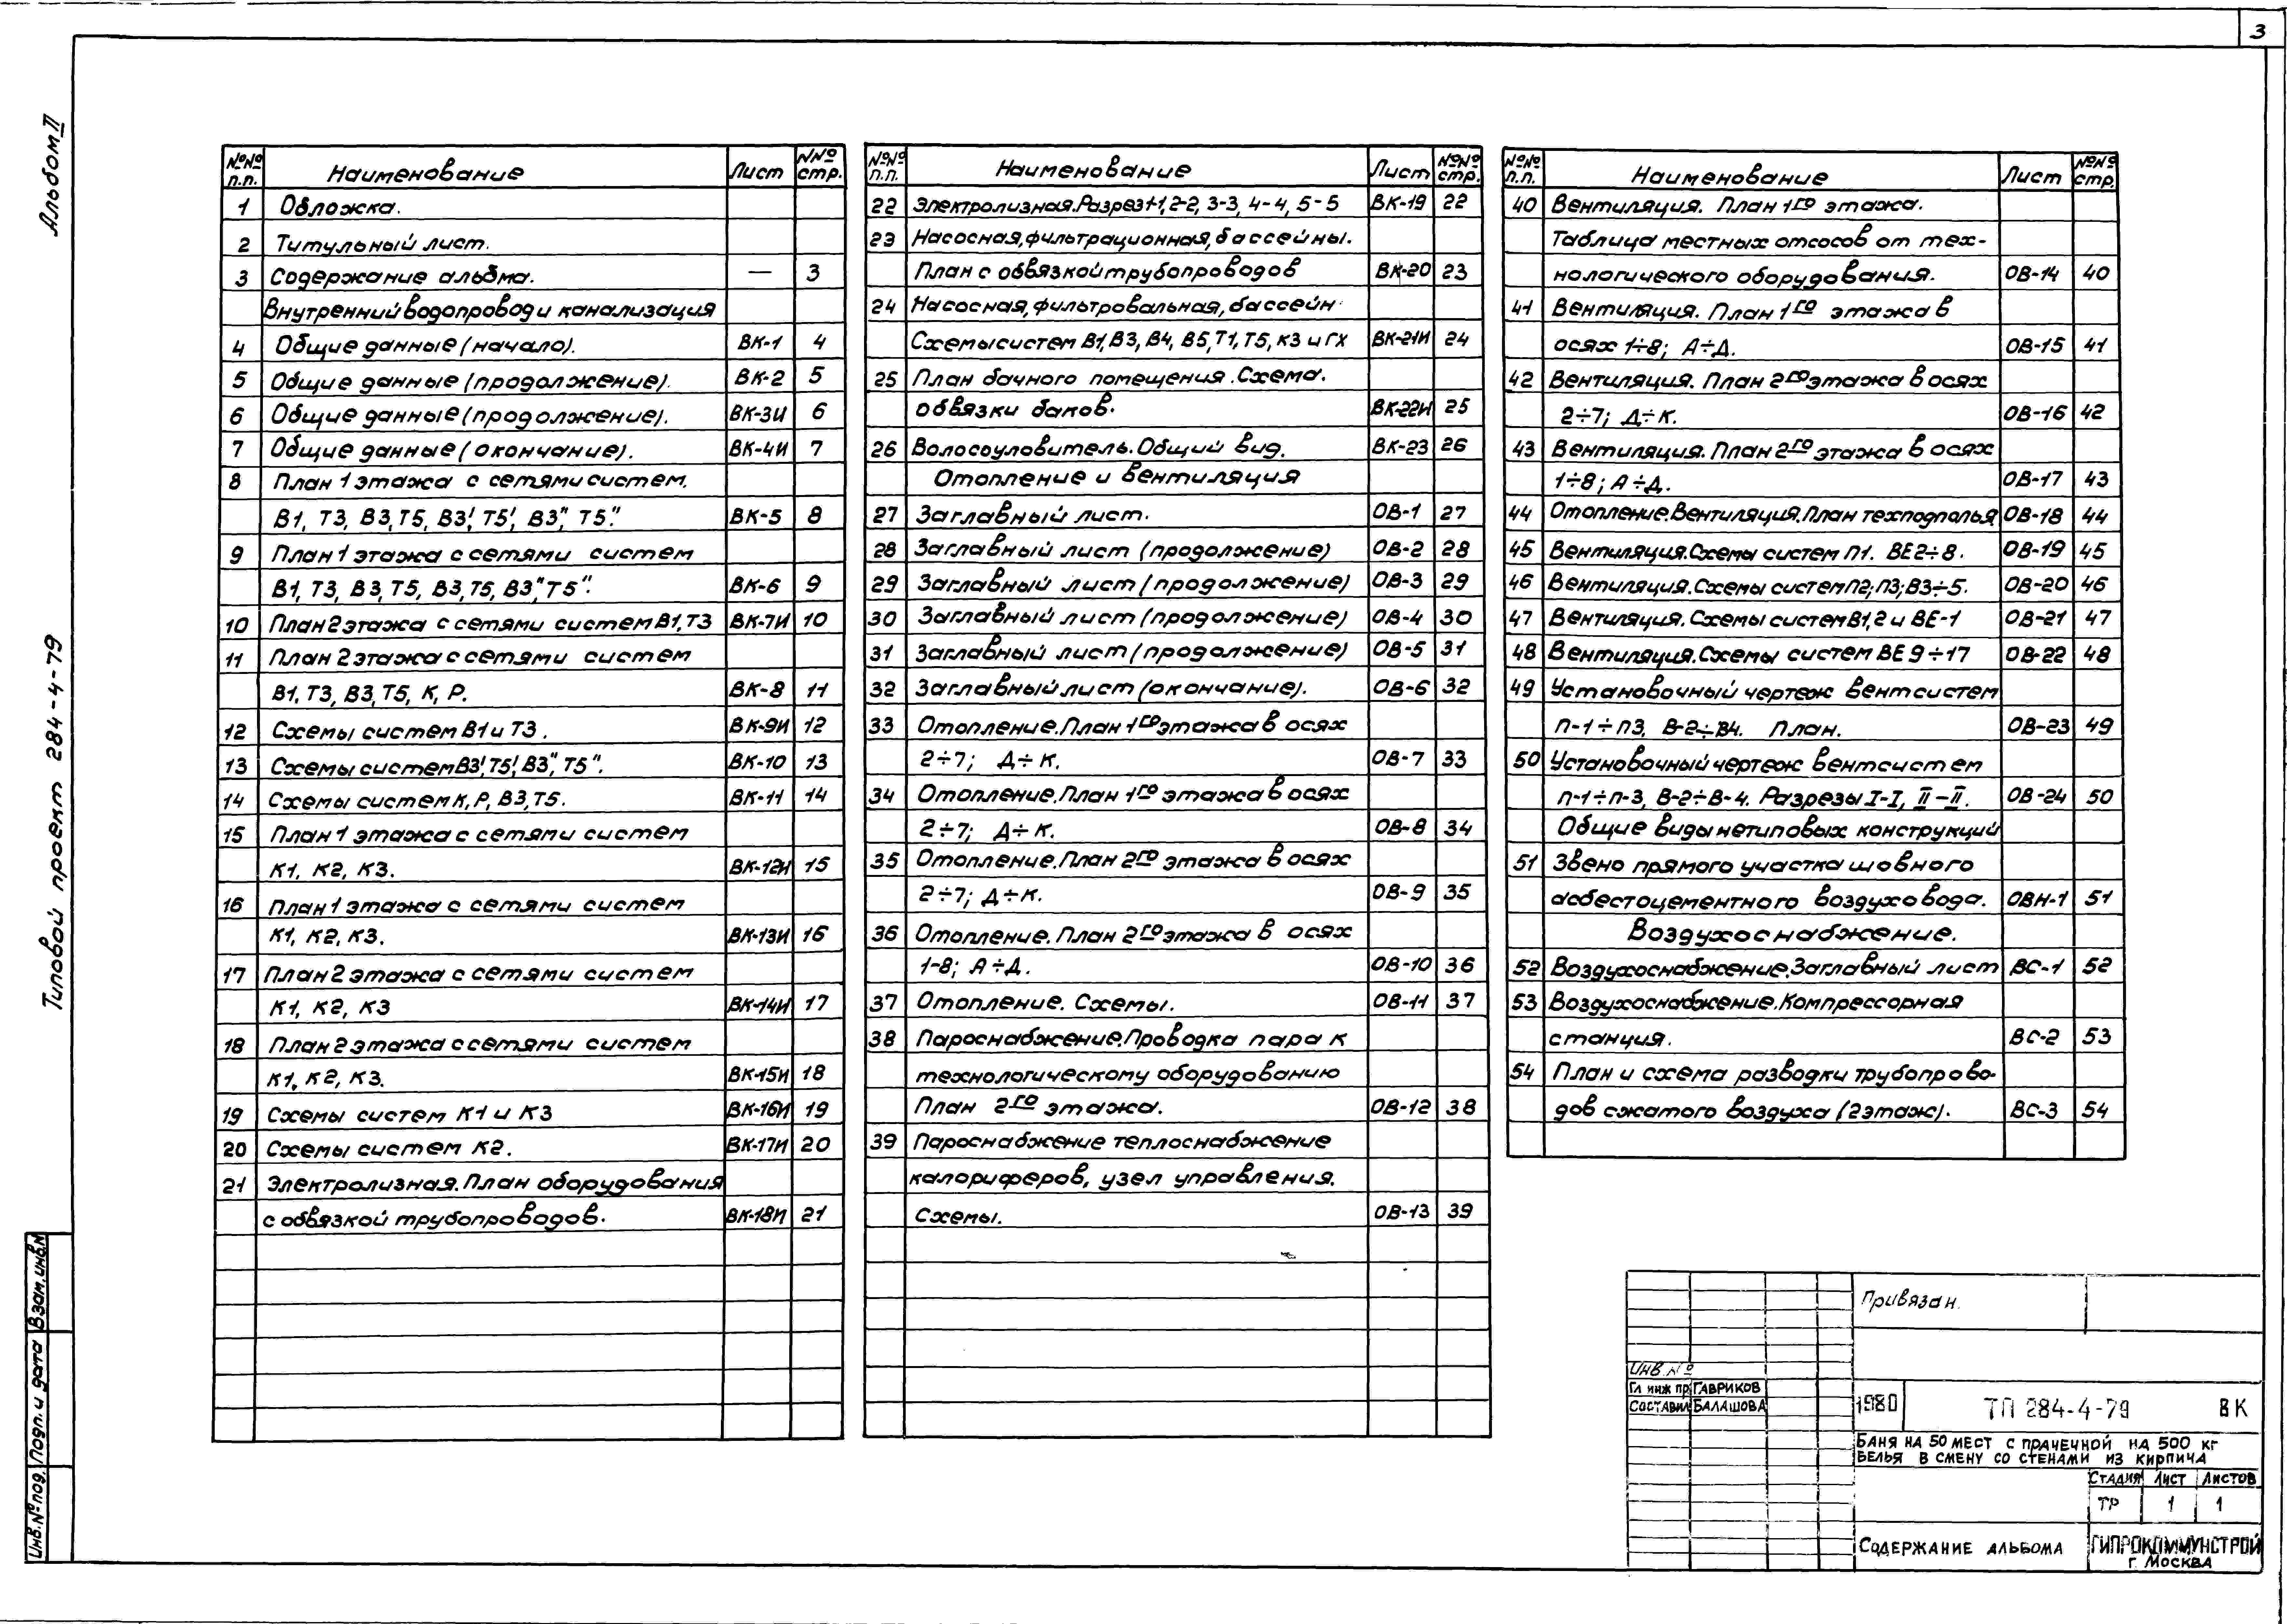 3
Альбом II
Типовой проект 284-4-79
Инв.№ под. Подп. и дата Взам.инв.№
№№ п.п. Наименование Лист №№ стр.
1 Обложка.
2 Титульный лист.
3 Содержание альбма. — 3
Внутренний водопровод и канализация
4 Общие данные (начало). ВК-1 4
5 Общие данные (продолжение). ВК-2 5
6 Общие данные (продолжение). ВК-3И 6
7 Общие данные (окончание). ВК-4И 7
8 План 1 этажа с сетями систем.
В1, Т3, В3, Т5, В3', Т5', В3", Т5". ВК-5 8
9 План 1 этажа с сетями систем
В1, Т3, В3, Т5, В3, Т5, В3", Т5". ВК-6 9
10 План 2 этажа с сетями систем В1, Т3 ВК-7И 10
11 План 2 этажа с сетями систем
В1, Т3, В3, Т5, К, Р. ВК-8 11
12 Схемы систем В1 и Т3. ВК-9И 12
13 Схемы систем В3', Т5', В3", Т5". ВК-10 13
14 Схемы систем К, Р, В3, Т5. ВК-11 14
15 План 1 этажа с сетями систем
К1, К2, К3. ВК-12И 15
16 План 1 этажа с сетями систем
К1, К2, К3. ВК-13И 16
17 План 2 этажа с сетями систем
К1, К2, К3 ВК-14И 17
18 План 2 этажа с сетями систем
К1, К2, К3. ВК-15И 18
19 Схемы систем К1 и К3 ВК-16И 19
20 Схемы систем К2. ВК-17И 20
21 Электролизная. План оборудования
с обвязкой трубопроводов. ВК-18И 21
№№ п.п. Наименование Лист №№ стр.
22 Электролизная. Разрез 1-1, 2-2, 3-3, 4-4, 5-5 ВК-19 22
23 Насосная, фильтрационная, бассейны.
План с обвязкой трубопроводов ВК-20 23
24 Насосная, фильтровальная, бассейн
Схемы систем В1, В3, В4, В5, Т1, Т5, К3 и ГХ ВК-21И 24
25 План бачного помещения. Схема.
обвязки баков. ВК-22И 25
26 Волосоуловитель. Общий вид. ВК-23 26
Отопление и вентиляция
27 Заглавный лист. ОВ-1 27
28 Заглавный лист (продолжение) ОВ-2 28
29 Заглавный лист (продолжение) ОВ-3 29
30 Заглавный лист (продолжение) ОВ-4 30
31 Заглавный лист (продолжение) ОВ-5 31
32 Заглавный лист (окончание). ОВ-6 32
33 Отопление. План 1го этажа в осях
2÷7; Д÷К. ОВ-7 33
34 Отопление. План 1го этажа в осях
2÷7; Д÷К. ОВ-8 34
35 Отопление. План 2го этажа в осях
2÷7; Д÷К. ОВ-9 35
36 Отопление. План 2го этажа в осях
1-8; А÷Д. ОВ-10 36
37 Отопление. Схемы. ОВ-11 37
38 Пароснабжение. Проводка пара к
технологическому оборудованию
План 2го этажа. ОВ-12 38
39 Пароснабжение теплоснабжение
калориферов, узел управления.
Схемы. ОВ-13 39
№№ п.п. Наименование Лист №№ стр.
40 Вентиляция. План 1го этажа.
Таблица местных отсосов от тех-
нологического оборудования. ОВ-14 40
41 Вентиляция. План 1го этажа в
осях 1÷8; А÷Д. ОВ-15 41
42 Вентиляция. План 2го этажа в осях
2÷7; Д÷К. ОВ-16 42
43 Вентиляция. План 2го этажа в осях
1÷8; А÷Д. ОВ-17 43
44 Отопление. Вентиляция. План техподполья ОВ-18 44
45 Вентиляция. Схемы систем П1. ВЕ2÷8. ОВ-19 45
46 Вентиляция. Схемы систем П2; П3; В3÷5. ОВ-20 46
47 Вентиляция. Схемы систем В1,2 и ВЕ-1 ОВ-21 47
48 Вентиляция. Схемы систем ВЕ9÷17 ОВ-22 48
49 Установочный чертеж вентсистем
П-1÷П3, В-2÷В4. План. ОВ-23 49
50 Установочный чертеж вентсистем
П-1÷П-3, В-2÷В-4. Разрезы I-I, II-II. ОВ-24 50
Общие виды нетиповых конструкций
51 Звено прямого участка шовного
асбестоцементного воздуховода. ОВН-1 51
Воздухоснабжение.
52 Воздухоснабжение. Заглавный лист ВС-1 52
53 Воздухоснабжение. Компрессорная
станция. ВС-2 53
54 План и схема разводки трубопрово-
дов сжатого воздуха (2 этаж). ВС-3 54
Привязан.
Инв.№
Гл инж пр ГАВРИКОВ
СОСТАВИЛ БАЛАШОВА
1980 ТП 284-4-79 ВК
БАНЯ НА 50 МЕСТ С ПРАЧЕЧНОЙ НА 500 КГ
БЕЛЬЯ В СМЕНУ СО СТЕНАМИ ИЗ КИРПИЧА
СТАДИЯ ЛИСТ ЛИСТОВ
ТР 1 1
СОДЕРЖАНИЕ АЛЬБОМА
ГИПРОКОММУНСТРОЙ
Г. МОСКВА